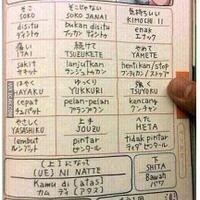 そこ そこじゃない 気持ちいい
SOKO SOKO JANAI KIMOCHI II
disitu bukan disitu enak
ディシトゥ ブカン ディシトゥ エナック
痛い 続けて やめて
ITAI TSUZUKETE YAMETE
sakit lanjutkan hentikan/stop
サキット ランジュットカン フンティカン/ストップ
はやく ゆっくり 強く
HAYAKU YUKKURI TSUYOKU
cepat pelan-pelan kencang
チュパット プランプラン クンチャン
やさしく 上手 へた
YASASHIKU JOUZU HETA
lembut pintar tidak pintar
ルンブット ピンタル ティダ ピンタル
(上)になって 下
(UE) NI NATTE SHITA
Kamu di (atas) Bawah
カム ディ (アタス) バワ